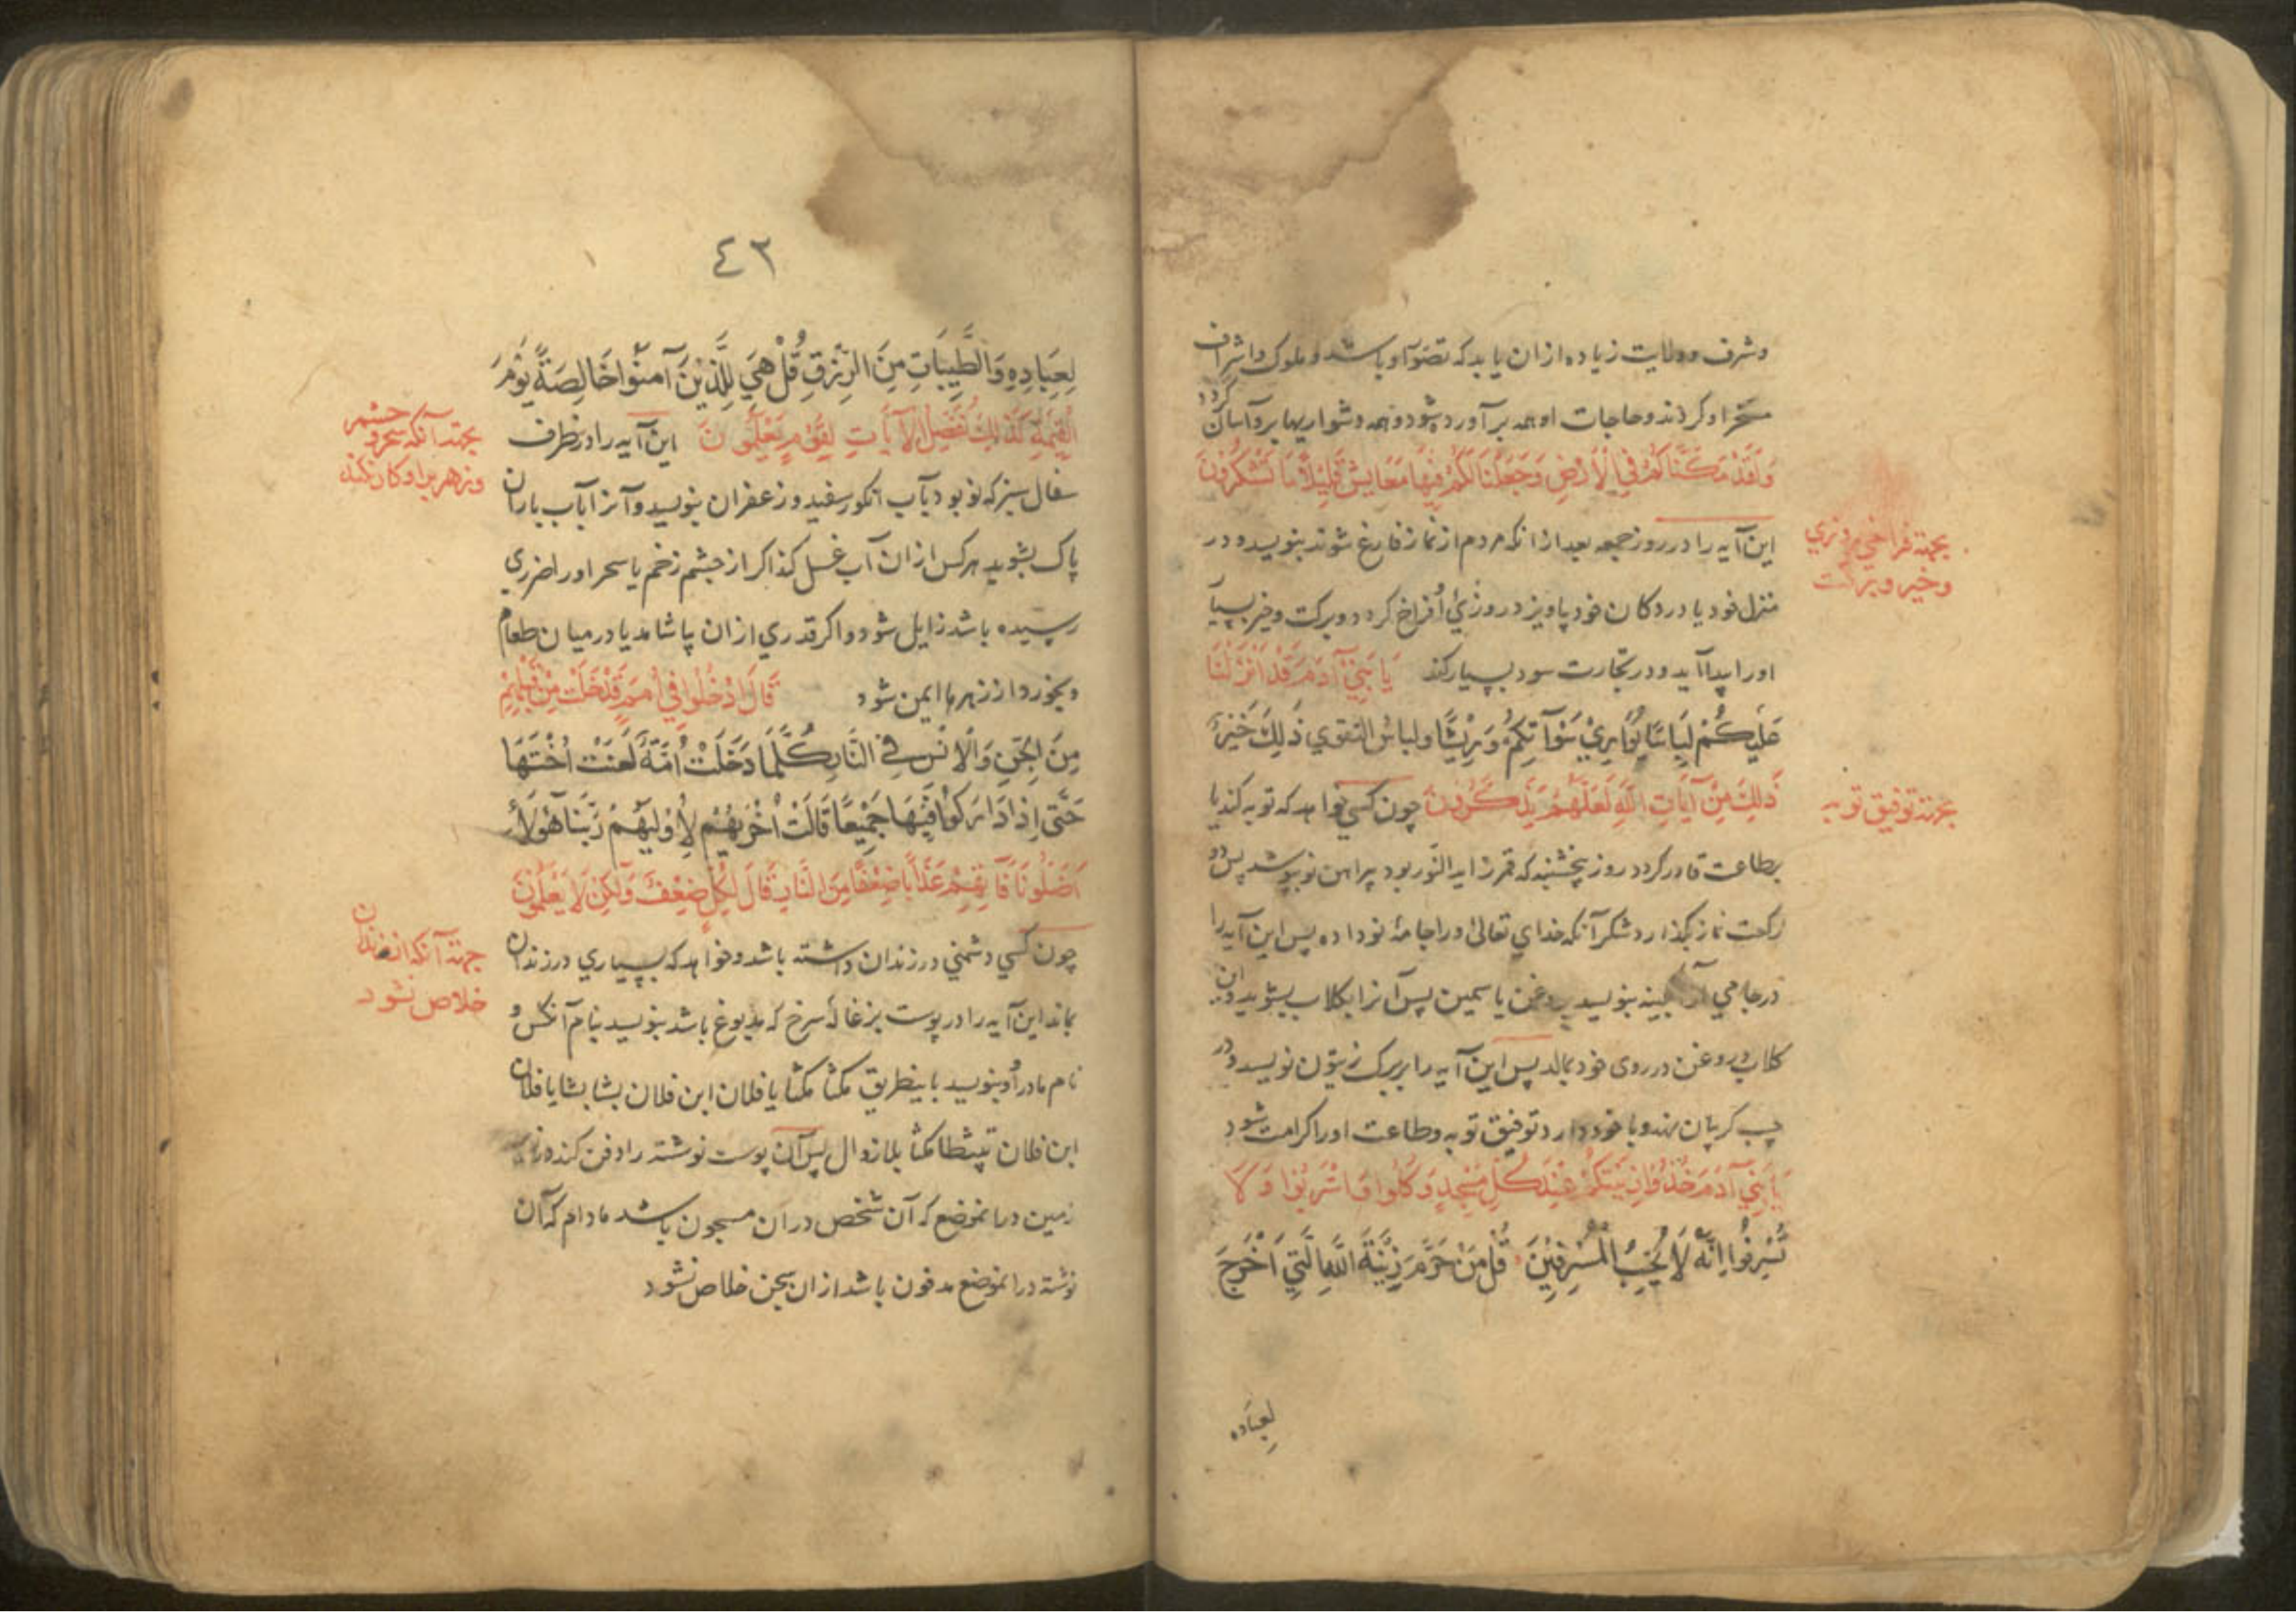 وشرف وولایت زیاده ازان یابد که تصوّر او باشد و ملوک و اشراف
مسخر او کردند و حاجات او همه برآورده شود و همه دشواریها برو آسان کردد
وَلَقَدْ مَكَّنَّاكُمْ فِي الْاَرْضِ وَجَعَلْنَا لَكُمْ فِيهَا مَعَايِشَ قَلِيْلًا مَا تَشْكُرُوْنَ
بجهته فراخی روزی
وخیر و برکت
این آیه را در روز جمعه بعد از انکه مردم از نماز فارغ شوند بنویسد و در
منزل خود یا در دکان خود بیاویزد روزیٔ او فراخ کردد و برکت و خیر بسیار
اورا پیدا آید و در تجارت سود بسیار کند يَا بَنِيْٓ آدَمَ قَدْ اَنْزَلْنَا
عَلَيْكُمْ لِبَاسًا يُوَارِيْ سَوْآتِكُمْ وَرِيْشًا ولباسُ التقوي ذَلِكَ خَيْرٌ
ذَلِكَ مِنْ آيَاتِ اللّٰهِ لَعَلَّهُمْ يَذَّكَّرُوْنَ چون کسی خواهد که توبه کند یا
بجهته توفیق توبه
بطاعت قادر کردد روز پنجشنبه که قمر زاید النّور بود پیراهن نو بپوشد پس دو
رکعت نماز بکذارد شکر آنکه خدای تعالی اورا جامهٔ نو داده پس این آیه را
در جامی آبکینه بنویسد بروغن یاسمین پس آنرا بکلاب بشوید و ان
کلاب و روغن در روی خود بمالد پس این آیه را بر برک زیتون نویسد و در
جیب کریبان نهد و با خود دارد توفیق توبه و طاعت اورا کرامت شود
يَا بَنِيْٓ آدَمَ خُذُوْا زِيْنَتَكُمْ عِنْدَ كُلِّ مَسْجِدٍ وَكُلُوا وَاشْرَبُوْا وَلَا
تُسْرِفُوْا اِنَّهُ لَا يُحِبُّ الْمُسْرِفِيْنَ قُلْ مَنْ حَرَّمَ زِيْنَةَ اللّٰهِ الَّتِيْٓ اَخْرَجَ
لِعِبَاده
٤٢
لِعِبَادِهِ وَالطَّيِّبَاتِ مِنَ الرِّزْقِ قُلْ هِيَ لِلَّذِيْنَ آمَنُوْا خَالِصَةً يَوْمَ
الْقِيٰمَةِ كَذَلِكَ نُفَصِّلُ الْآيَاتِ لِقَوْمٍ يَعْلَمُوْنَ این آیه را در ظرف
بجهته آنکه سحر و چشم
و زهر برا و کار نکند
سفال سبز که نو بود بآب انکور سفید و زعفران بنویسد و آنرا بآب باران
پاک بشوید هر کس ازان آب غسل کند اکر از چشم زخم یا سحر اورا ضرری
رسیده باشد زایل شود و اکر قدری ازان بیاشامد یا در میان طعام
و بخورد از زهرها ایمن شود قَالَ ادْخُلُوا فِيْ اُمَمٍ قَدْ خَلَتْ مِنْ قَبْلِكُمْ
مِنَ الْجِنِّ وَالْاِنْسِ فِي النَّارِ كُلَّمَا دَخَلَتْ اُمَّةٌ لَعَنَتْ اُخْتَهَا
حَتّٰى اِذَا ادَّارَكُوْا فِيْهَا جَمِيْعًا قَالَتْ اُخْرٰيهُمْ لِاُوْلٰيهُمْ رَبَّنَا هٰؤُلَآءِ
اَضَلُّوْنَا فَآتِهِمْ عَذَابًا ضِعْفًا مِنَ النَّارِ قَالَ لِكُلٍّ ضِعْفٌ وَلَكِنْ لَا يَعْلَمُوْنَ
جهته آنکه از زندان
خلاص نشود
چون کسی دشمنی در زندان داشته باشد و خواهد که بسیاری در زندان
بماند این آیه را در پوست بزغالهٔ سرخ که مدبوغ باشد بنویسد بنام آنکس و
نام مادر او بنویسد باینطریق مکثا مکثا یا فلان ابن فلان بشا بشا یا فلان
ابن فلان مکثا بلا زوال پس آن پوست نوشته را دفن کند در
زمین در انموضع که آن شخص در ان مسجون باشد مادام که آن
نوشته در انموضع مدفون باشد از ان سجن خلاص نشود